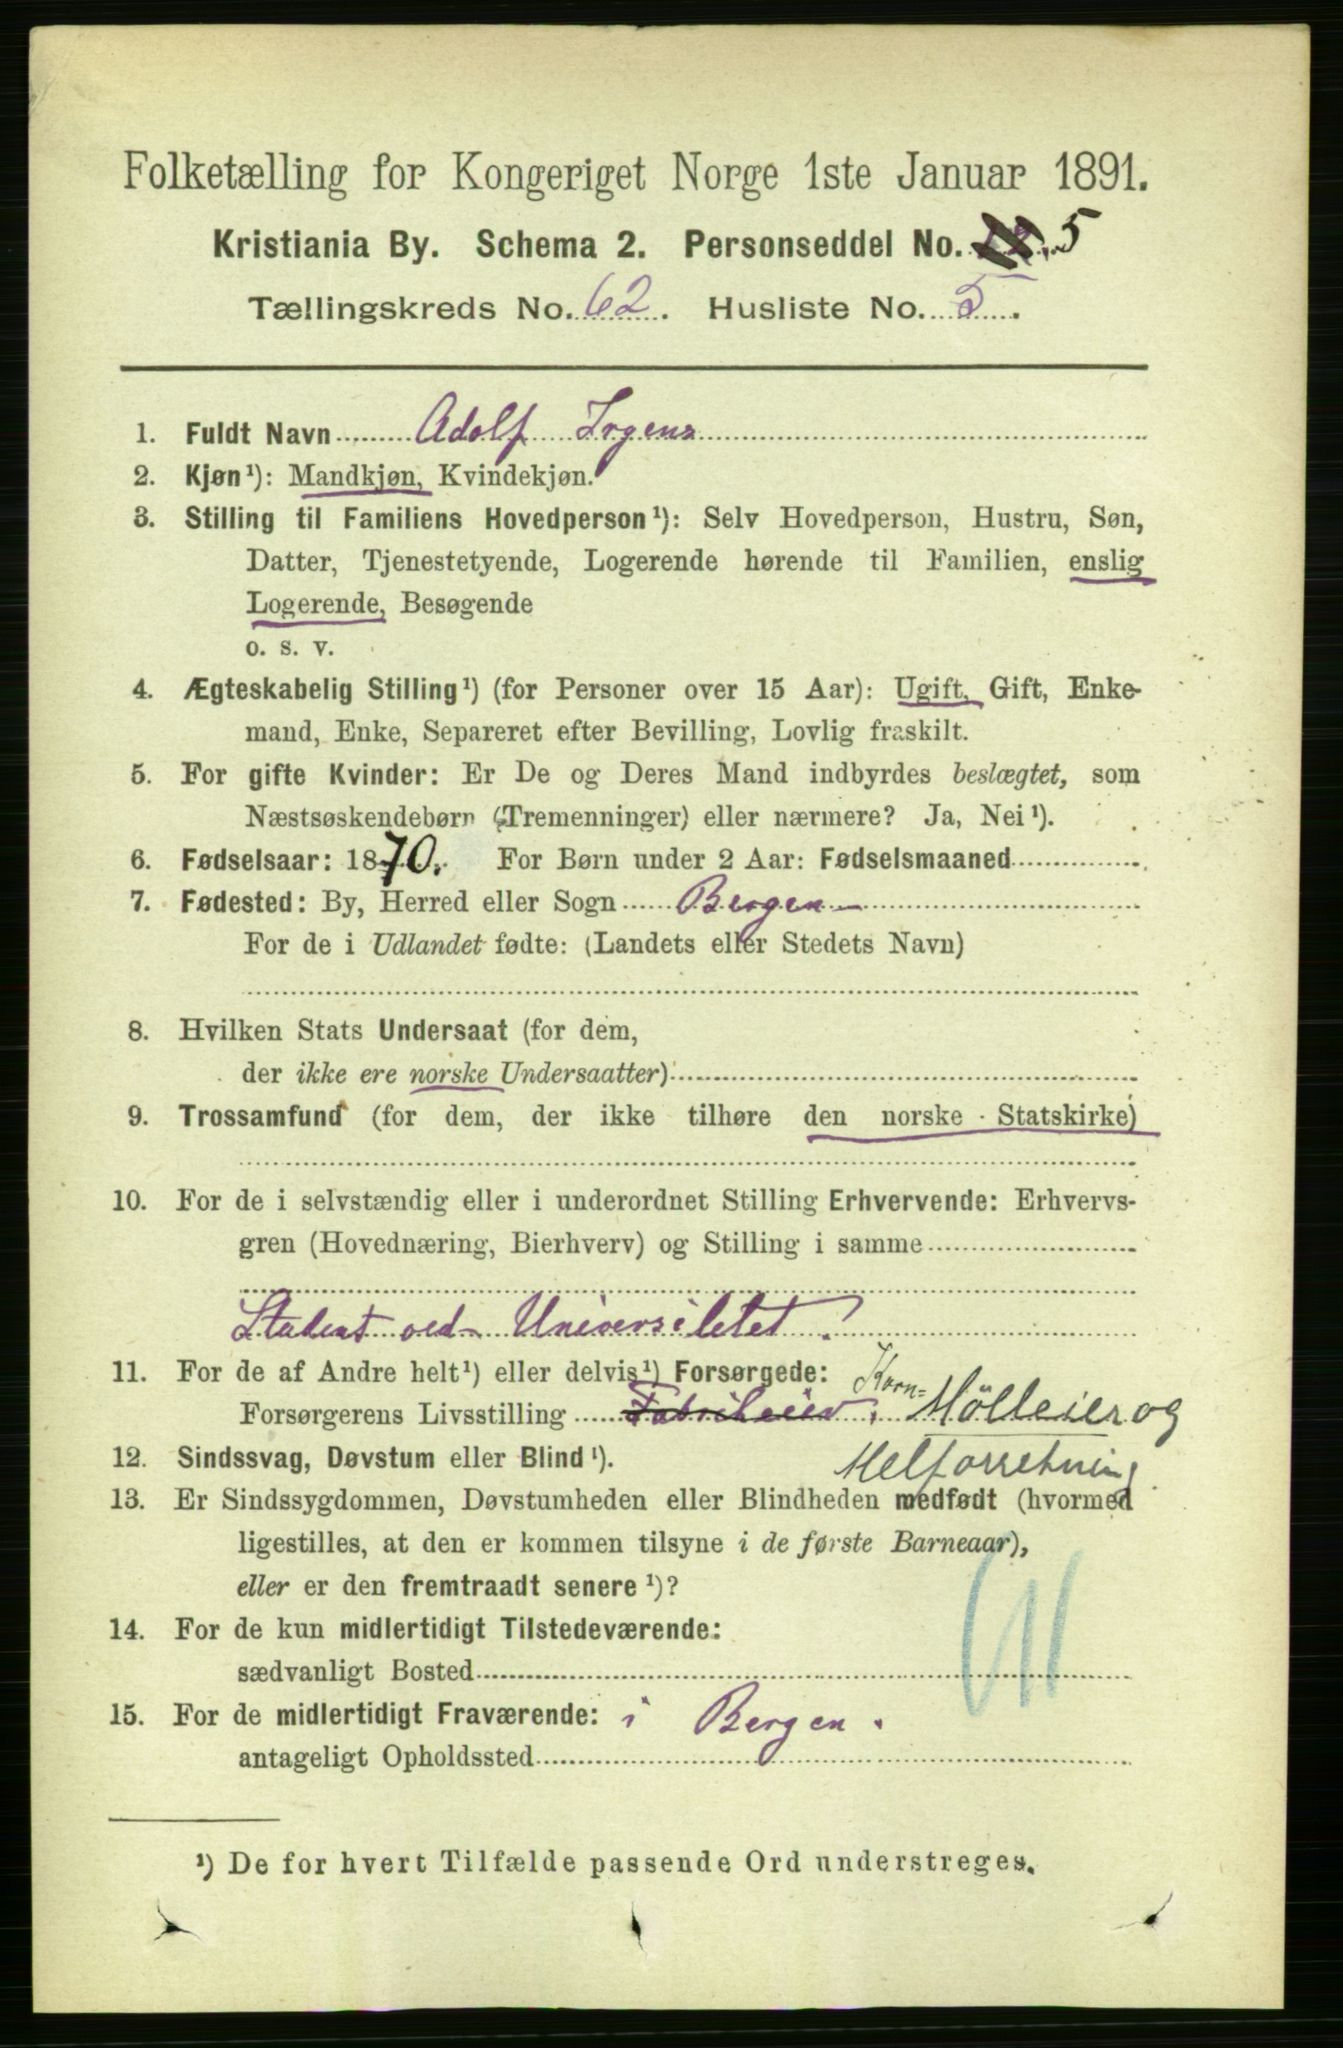 Folketælling for Kongeriget Norge 1ste Januar 1891.
Kristiania By. Schema 2. Personseddel No. 5
Tællingskreds No. 62. Husliste No. 5.
1. Fuldt Navn Adolf Irgens
2. Kjøn¹): Mandkjøn, Kvindekjøn.
3. Stilling til Familiens Hovedperson¹): Selv Hovedperson, Hustru, Søn,
Datter, Tjenestetyende, Logerende hørende til Familien, enslig
Logerende, Besøgende
o. s. v.
4. Ægteskabelig Stilling¹) (for Personer over 15 Aar): Ugift, Gift, Enke-
mand, Enke, Separeret efter Bevilling, Lovlig fraskilt.
5. For gifte Kvinder: Er De og Deres Mand indbyrdes beslægtet, som
Næstsøskendebørn (Tremenninger) eller nærmere? Ja, Nei¹).
6. Fødselsaar: 1870. For Børn under 2 Aar: Fødselsmaaned
7. Fødested: By, Herred eller Sogn Bergen
For de i Udlandet fødte: (Landets eller Stedets Navn)
8. Hvilken Stats Undersaat (for dem,
der ikke ere norske Undersaatter)
9. Trossamfund (for dem, der ikke tilhøre den norske Statskirke)
10. For de i selvstændig eller i underordnet Stilling Erhvervende: Erhvervs-
gren (Hovednæring, Bierhverv) og Stilling i samme
Student ved Universitetet.
11. For de af Andre helt¹) eller delvis¹) Forsørgede:
Forsørgerens Livsstilling Fabrikeier. Korn= Mölleier og
Melforretning
12. Sindssvag, Døvstum eller Blind¹).
13. Er Sindssygdommen, Døvstumheden eller Blindheden medfødt (hvormed
ligestilles, at den er kommen tilsyne i de første Barneaar),
eller er den fremtraadt senere¹)?
14. For de kun midlertidigt Tilstedeværende:
sædvanligt Bosted
15. For de midlertidigt Fraværende: i Bergen.
antageligt Opholdssted
¹) De for hvert Tilfælde passende Ord understreges.